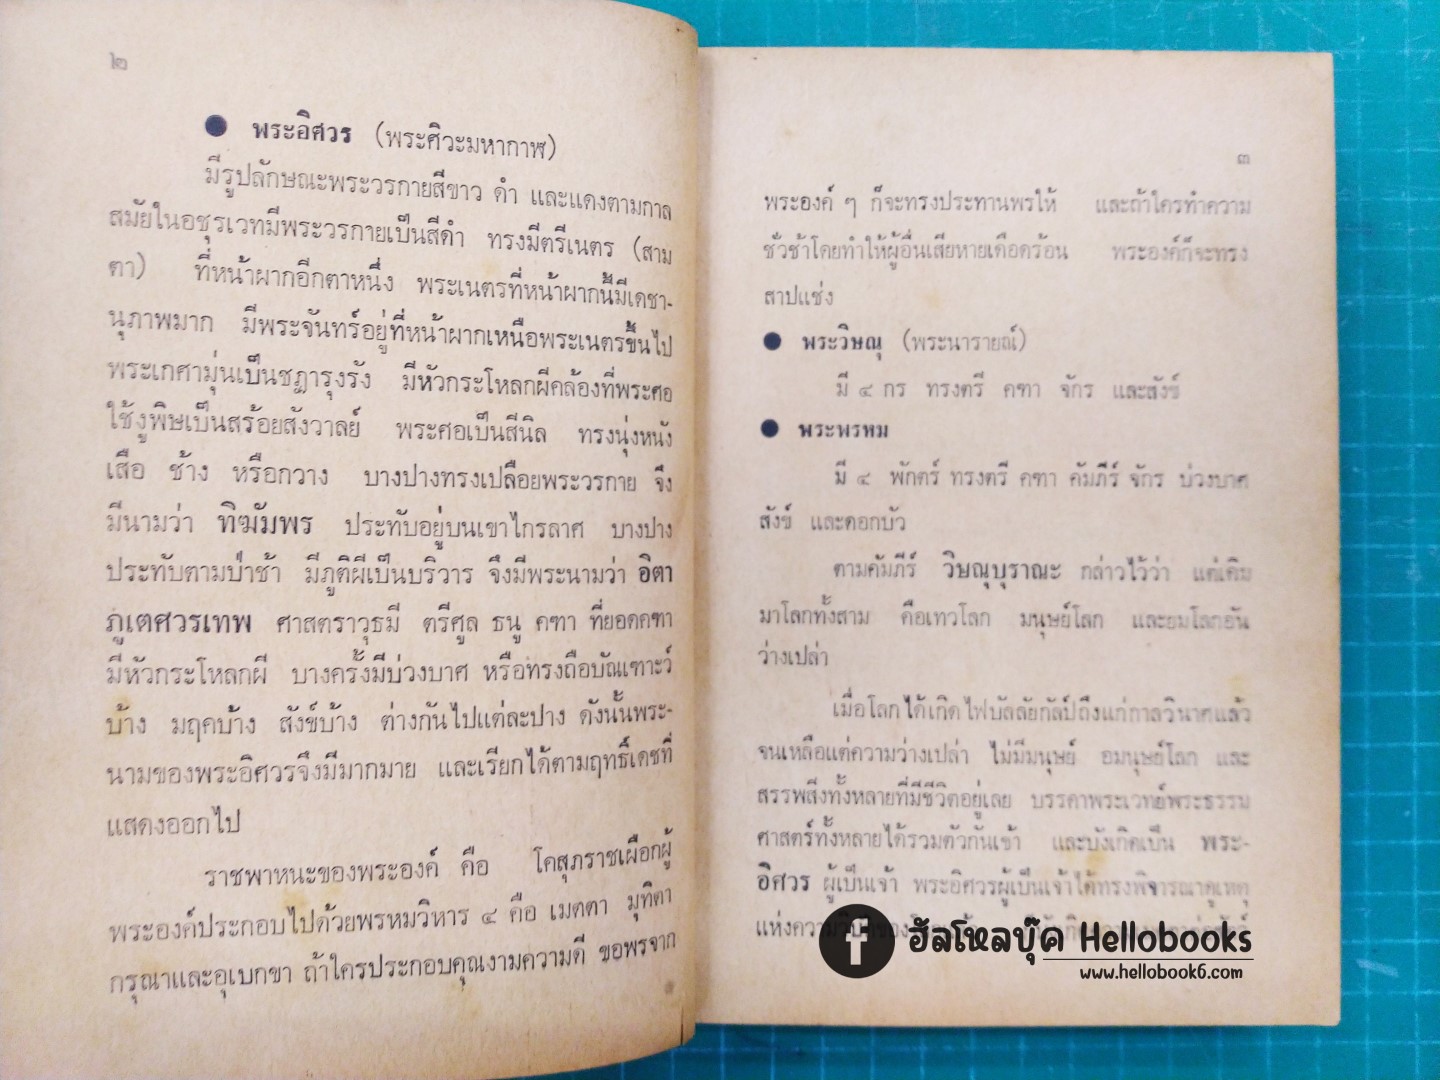 ๒
● พระอิศวร (พระศิวะมหากาฬ)
มีรูปลักษณะพระวรกายสีขาว ดำ และแดงตามกาล
สมัยในอชุรเวทมีพระวรกายเป็นสีดำ ทรงมีตรีเนตร (สาม
ตา) ที่หน้าผากอีกตาหนึ่ง พระเนตรที่หน้าผากนี้มีเดชา-
นุภาพมาก มีพระจันทร์อยู่ที่หน้าผากเหนือพระเนตรขึ้นไป
พระเกศามุ่นเป็นชฎารุงรัง มีหัวกระโหลกผีคล้องที่พระศอ
ใช้งูพิษเป็นสร้อยสังวาลย์ พระศอเป็นสีนิล ทรงนุ่งหนัง
เสือ ช้าง หรือกวาง บางปางทรงเปลือยพระวรกาย จึง
มีนามว่า ทิฆัมพร ประทับอยู่บนเขาไกรลาศ บางปาง
ประทับตามป่าช้า มีภูติผีเป็นบริวาร จึงมีพระนามว่า อิตา
ภูเตศวรเทพ ศาสตราวุธมี ตรีศูล ธนู คฑา ที่ยอดคฑา
มีหัวกระโหลกผี บางครั้งมีบ่วงบาศ หรือทรงถือบัณเฑาะว์
บ้าง มฤคบ้าง สังข์บ้าง ต่างกันไปแต่ละปาง ดังนั้นพระ-
นามของพระอิศวรจึงมีมากมาย และเรียกได้ตามฤทธิ์เดชที่
แสดงออกไป
ราชพาหนะของพระองค์ คือ โคสุภราชเผือกผู้
พระองค์ประกอบไปด้วยพรหมวิหาร ๔ คือ เมตตา มุทิตา
กรุณาและอุเบกขา ถ้าใครประกอบคุณงามความดี ขอพรจาก
๓
พระองค์ ๆ ก็จะทรงประทานพรให้ และถ้าใครทำความ
ชั่วช้าโดยทำให้ผู้อื่นเสียหายเดือดร้อน พระองค์ก็จะทรง
สาปแช่ง
● พระวิษณุ (พระนารายณ์)
มี ๔ กร ทรงตรี คฑา จักร และสังข์
● พระพรหม
มี ๔ พักตร์ ทรงตรี คฑา คัมภีร์ จักร บ่วงบาศ
สังข์ และดอกบัว
ตามคัมภีร์ วิษณุบุราณะ กล่าวไว้ว่า แต่เดิม
มาโลกทั้งสาม คือเทวโลก มนุษย์โลก และยมโลกอัน
ว่างเปล่า
เมื่อโลกได้เกิดไฟบัลลัยกัลป์ถึงแก่กาลวินาศแล้ว
จนเหลือแต่ความว่างเปล่า ไม่มีมนุษย์ อมนุษย์โลก และ
สรรพสิ่งทั้งหลายที่มีชีวิตอยู่เลย บรรดาพระเวทย์พระธรรม
ศาสตร์ทั้งหลายได้รวมตัวกันเข้า และบังเกิดเป็น พระ-
อิศวร ผู้เป็นเจ้า พระอิศวรผู้เป็นเจ้าได้ทรงพิจารณาดูเหตุ
แห่งความวิบัติของ
f ฮัลโหลบุ๊ค Hellobooks
www.hellobook6.com